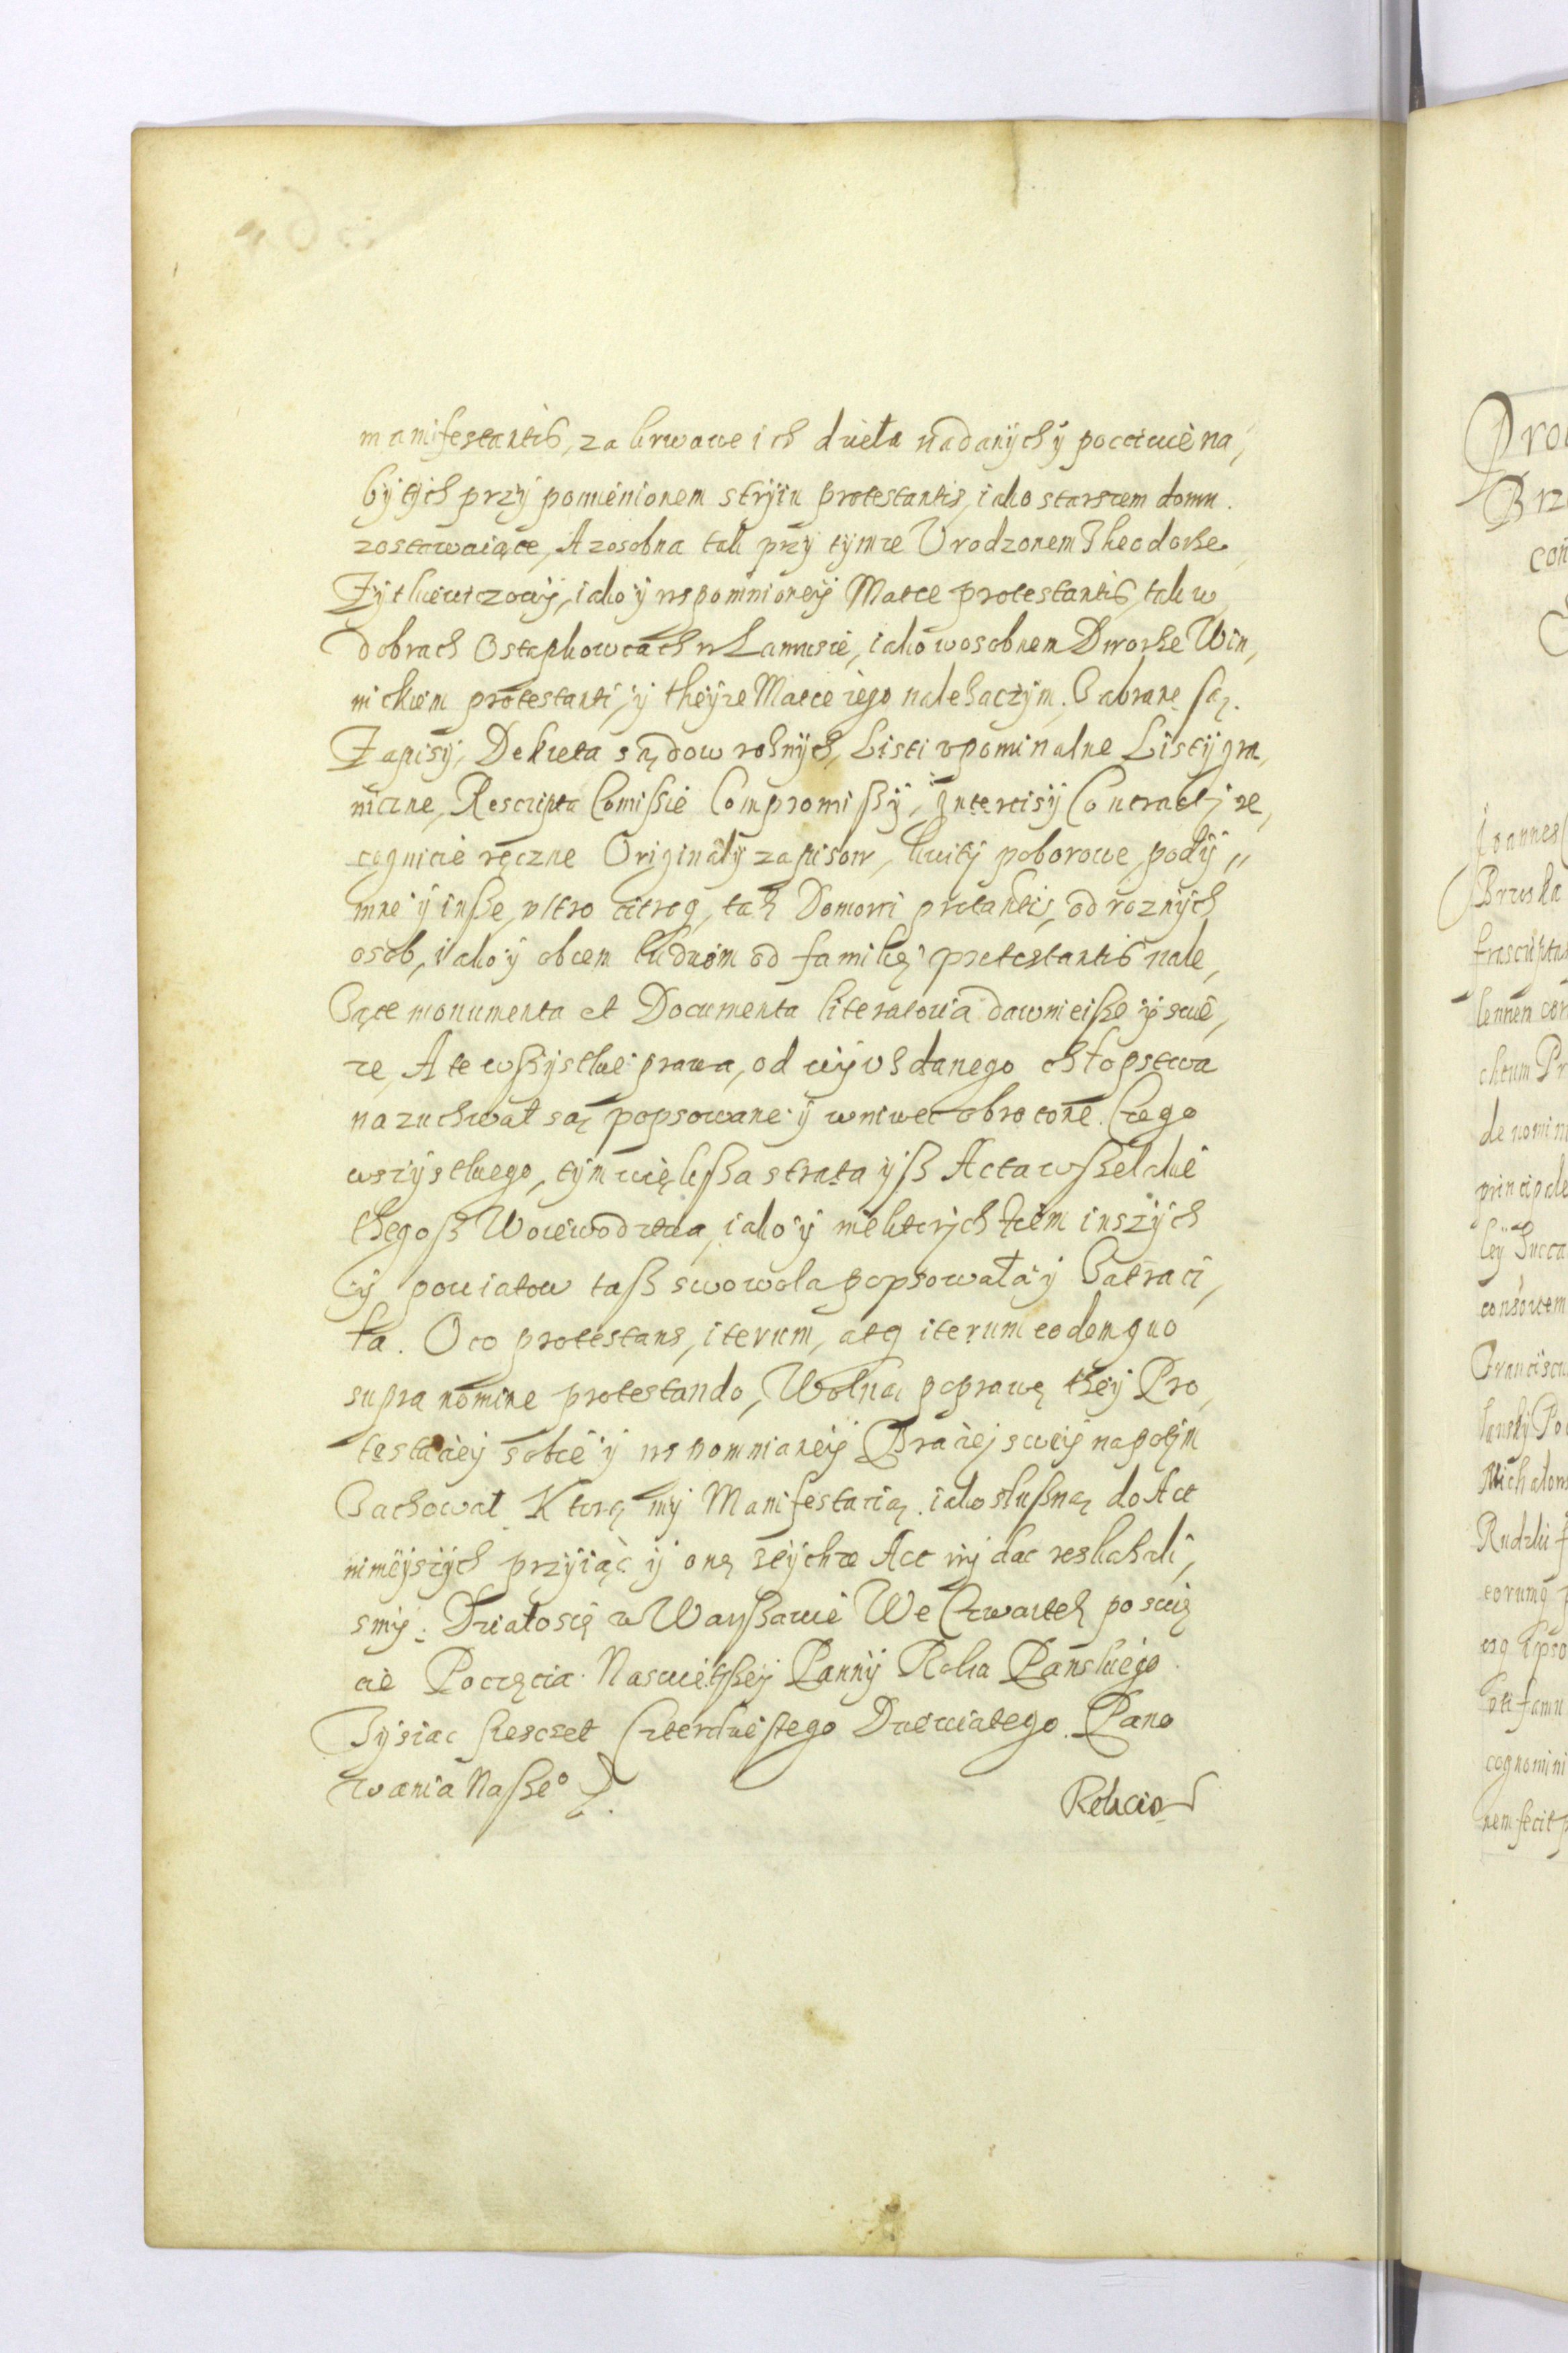 manifestantis, za krwawe ich dzieła nadanych y poccziwie na,
bytych przy pomienionem stryiu protestantis, iako starszem domu
zostawaiące, A zosobna tak przy tymze Urodzonem Theodorze
Zytkiewiczowi, iako y wspomnioney Matce protestantis, tak w
dobrach Ostapkowcach w Lamusie, iako w osobnem Dworze Win,
nickiem protestanti, y theyze Matce iego nalezaczym, Zabrane są.
Zapisy, Dekreta sądow roznych, Listi vpominalne Listy gra,
niczne, Rescripta Comissie Compromissy, Intercisy Contracty re,
cognicie ręczne Originały zapisow, kwity poborowe, pody"
mne y insze vltro citroq, tak Domowi protantis, od roznych
osob, iako y obcem ludziom od familię protestantis nale,
zące monumenta et Documenta literatoria dawnieisze y swie,
ze, A te wszystkie prawa, od wyuzdanego chłopstwa
nazuchwał są popsowane y wniwec obrocone. Czego
wszystkiego, tym większa strata ysz Acta wszelakie
thegosz Woiewodztwa, iako y niektorych Ziem inszych
y powiatow tasz swowola popsowała y Zatraci,
ła. Oco protestans, iterum, atq iterum eodem quo
supra nomine protestando, Wolną poprawę they Pro,
testaciey sobie y wspomnianey Braciey swey napotym
Zachował. Ktorą my Manifestacią iako słuszną do Act
ninieyszych przyiąc y oną zeychze Act wydac reskazali,
smy. Działosię w Warszawie We Czwartek po swię
cie Poczęcia Naswiętszey Panny Roku Panskiego
Tysiac szescset Czterdziestego Dziewiatego. Pano
wania Naszeo
Relacio